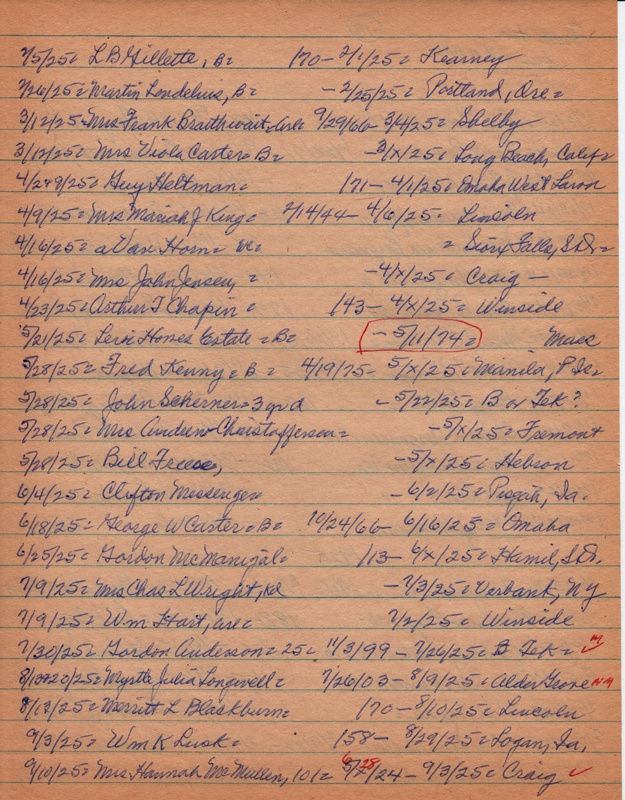 2/5/25= L B Gillette, B= 170- 2/1/25= Kearney
2/26/25= Martin Lendelius, B= -2/25/25= Portland, Ore=
3/12/25= Mrs Frank Braithwait, are= 9/29/66- 3/4/25= Shelby
3/12/25= Mrs Viola Carter= B= -3/x/25= Long Beach, Calif=
4/2+9/25= Guy Heltman= 171- 4/1/25= Omaha West Lawn
4/9/25= Mrs Mariah J King= 2/14/44- 4/6/25= Lincoln
4/16/25= a Van Horn= = Sioux Falls, S.D.=
4/16/25= Mrs John Jensen, = -4/x/25= Craig-
4/23/25= Arthur T Chapin = 143- 4/x/25= Winside
5/21/25= Levi Hones Estate= B= -5/11/74= Mass
5/28/25= Fred Kenny= B= 4/19/75- 5/x/25= Manila, P Is=
5/28/25= John Scherner= 3 gr d -5/22/25= B or Tek?
5/28/25= Mrs Andrew Christoffersen= -5/x/25= Fremont
5/28/25= Bill Freese, -5/x/25= Hebron
6/4/25= Clifton Messenger= -6/2/25= Pisgah, Ia.
6/18/25= George W Carter= B= 10/24/66- 6/16/25= Omaha
6/25/25= Gordon McManigal= 113- 6/x/25= Hamil, S.D.
7/9/25= Mrs Chas L Wright, -7/3/25= Verbank, NY
7/9/25= Wm Hart, are= 7/2/25= Winside
7/30/25= Gordon Anderson= 25= 11/3/99- 7/26/25= Tek=
Myrtle Julia Longwell= 7/26/03- 8/9/25= Alder Grove NM
8/13/25= Merritt L Blackburn= 170- 8/10/25= Lincoln
9/3/25= Wm K Lusk= 158- 8/29/25= Logan, Ia,
9/10/25= Mrs. Hannah McMullen, 101= 6/28/24- 9/3/25= Craig ✓